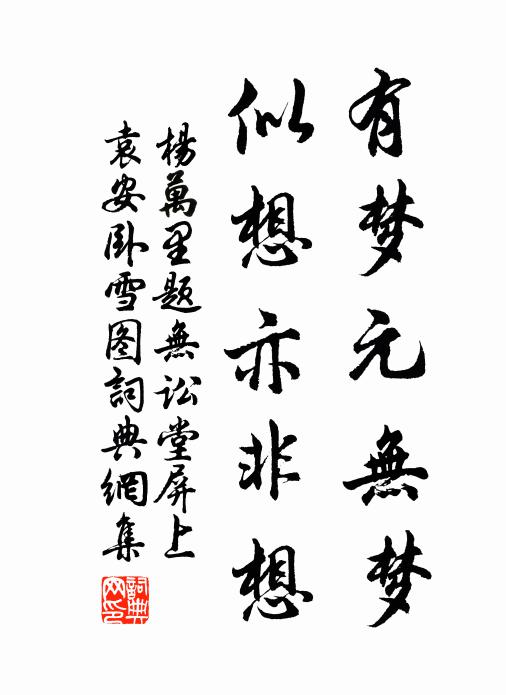 有梦元無梦
似想亦非想
楊萬里題無訟堂屏上
袁安卧雪图詞典網集
詞典网印